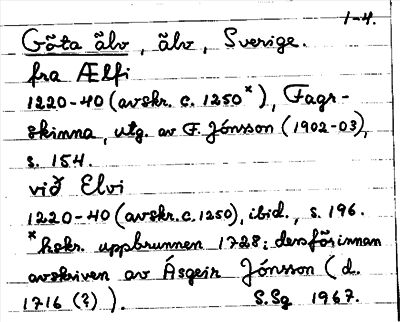 1-4.
Göta älv, älv, Sverige.
fra Ælfi
1220-40 (avskr. c. 1250*), Fagr-
skinna, utg. av F. Jónsson (1902-03),
s. 154.
við Elvi
1220-40 (avskr. c. 1250), ibid., s. 196.
* hskr. uppbrunnen 1728; dessförinnan
avskriven av Ásgeir Jónsson (d.
1716 (?)). S.Sg 1967.